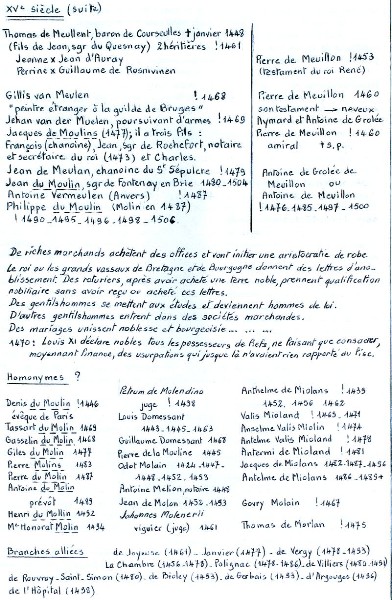 XVe siècle (suite)
Thomas de Meullent, baron de Courseulles † janvier 1448
(Fils de Jean, sgr du Quesnay) 2 héritières ! 1461
Jeanne x Jean d'Auray
Perrine x Guillaume de Rosnivinen
Gillis van Meulen ! 1468
"peintre étranger à la guilde de Bruges"
Jehan van der Muelen, poursuivant d'armes ! 1469
Jacques de Moulins (1477); il a trois fils :
François (chanoine), Jean, sgr de Rochefort, notaire
et secrétaire du roi (1473) et Charles.
Jean de Meulan, chanoine du St Sépulcre ! 1479
Jean du Moulin, sgr de Fontenay en Brie 1480-1504
Antoine Vermeulen (Anvers) ! 1487
Philippe du Moulin (Molin en 1487)
! 1490-1495-1496-1498-1506
Pierre de Meuillon ! 1453
(testament du roi René)
Pierre de Meuillon 1460
son testament → neveux
Aymard et Antoine de Grolée
Pierre de Meuillon ! 1460
amiral † s.p.
Antoine de Grolée de
Meuillon ou
Antoine de Meuillon
! 1476-1485-1497-1500
De riches marchands achètent des offices et vont initier une aristocratie de robe.
Le roi ou les grands vassaux de Bretagne et de Bourgogne donnent des lettres d'ano-
blissement. Des roturiers, après avoir acheté une terre noble, prennent qualification
nobiliaire sans avoir reçu ou acheté ces lettres.
Des gentilshommes se mettent aux études et deviennent hommes de loi.
D'autres gentilshommes entrent dans des sociétés marchandes.
Des mariages unissent noblesse et bourgeoisie ... ... ...
1470: Louis XI déclare nobles tous les possesseurs de fiefs, ne faisant que consacrer,
moyennant finance, des usurpations qui jusque là n'avaient rien rapporté au fisc.
Homonymes ?
Denis du Moulin ! 1446
évêque de Paris
Tassart du Molin 1469
Gasselin du Molin 1468
Giles du Molin 1477
Pierre Molins 1483
Pierre du Molin 1487
Antoine du Molin
prévôt 1489
Henri du Mollin 1492
Me Honorat Molin 1494
Petrum de Molendino
juge ! 1438
Louis Domessant
1443-1445-1463
Guillaume Domessant 1468
Pierre de la Mouline 1445
Odet Molain 1424-1447-
1448-1452-1453
Antoine Melion, notaire 1448
Jean de Molon 1452-1453
Johannes Molenerii
viguier (juge) 1461
Anthelme de Miolans ! 1439
1452-1456 1462
Valis Mioland ! 1463-1471
Anselme Valis Miolin ! 1474
Antelme Valis Mioland ! 1478
Antermi de Mioland ! 1481
Jacques de Miolans 1482-1487-1456
Antelme de Miolans 1486-1485+
Govry Molain ! 1467
Thomas de Morlan ! 1475
Branches alliées de Joyeuse (1461) - Janvier (1477) - de Vergy (1478-1493)
La Chambre (1456-1478) - Polignac (1478-1486) - de Villiers (1480-1494)
de Rouvroy-Saint-Simon (1480), de Bioley (1493), de Gerbais (1493) - d'Argouges (1496)
de l'Hôpital (1498)